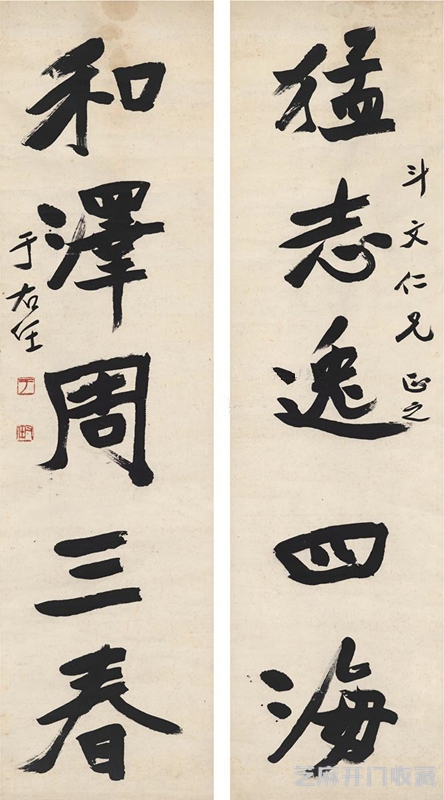 猛志逸四海
斗文仁兄正之
和澤周三春
于右任
芝麻开门收藏